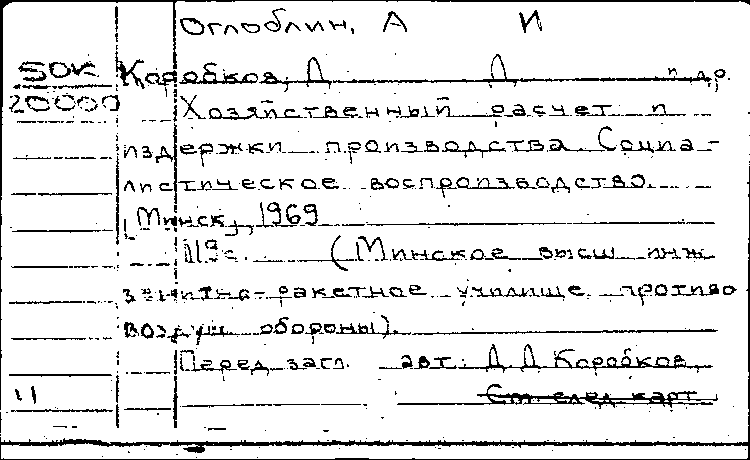 Оглоблин, А И
50К Коробков, Д Д и др.
20000 Хозяйственный расчет и
издержки производства. Социа-
листическое воспроизводство.
[Минск], 1969
113с. (Минское высш инж
зенитно-ракетное училище противо
воздуш обороны).
Перед загл. авт: Д Д Коробков,
11 См след карт.